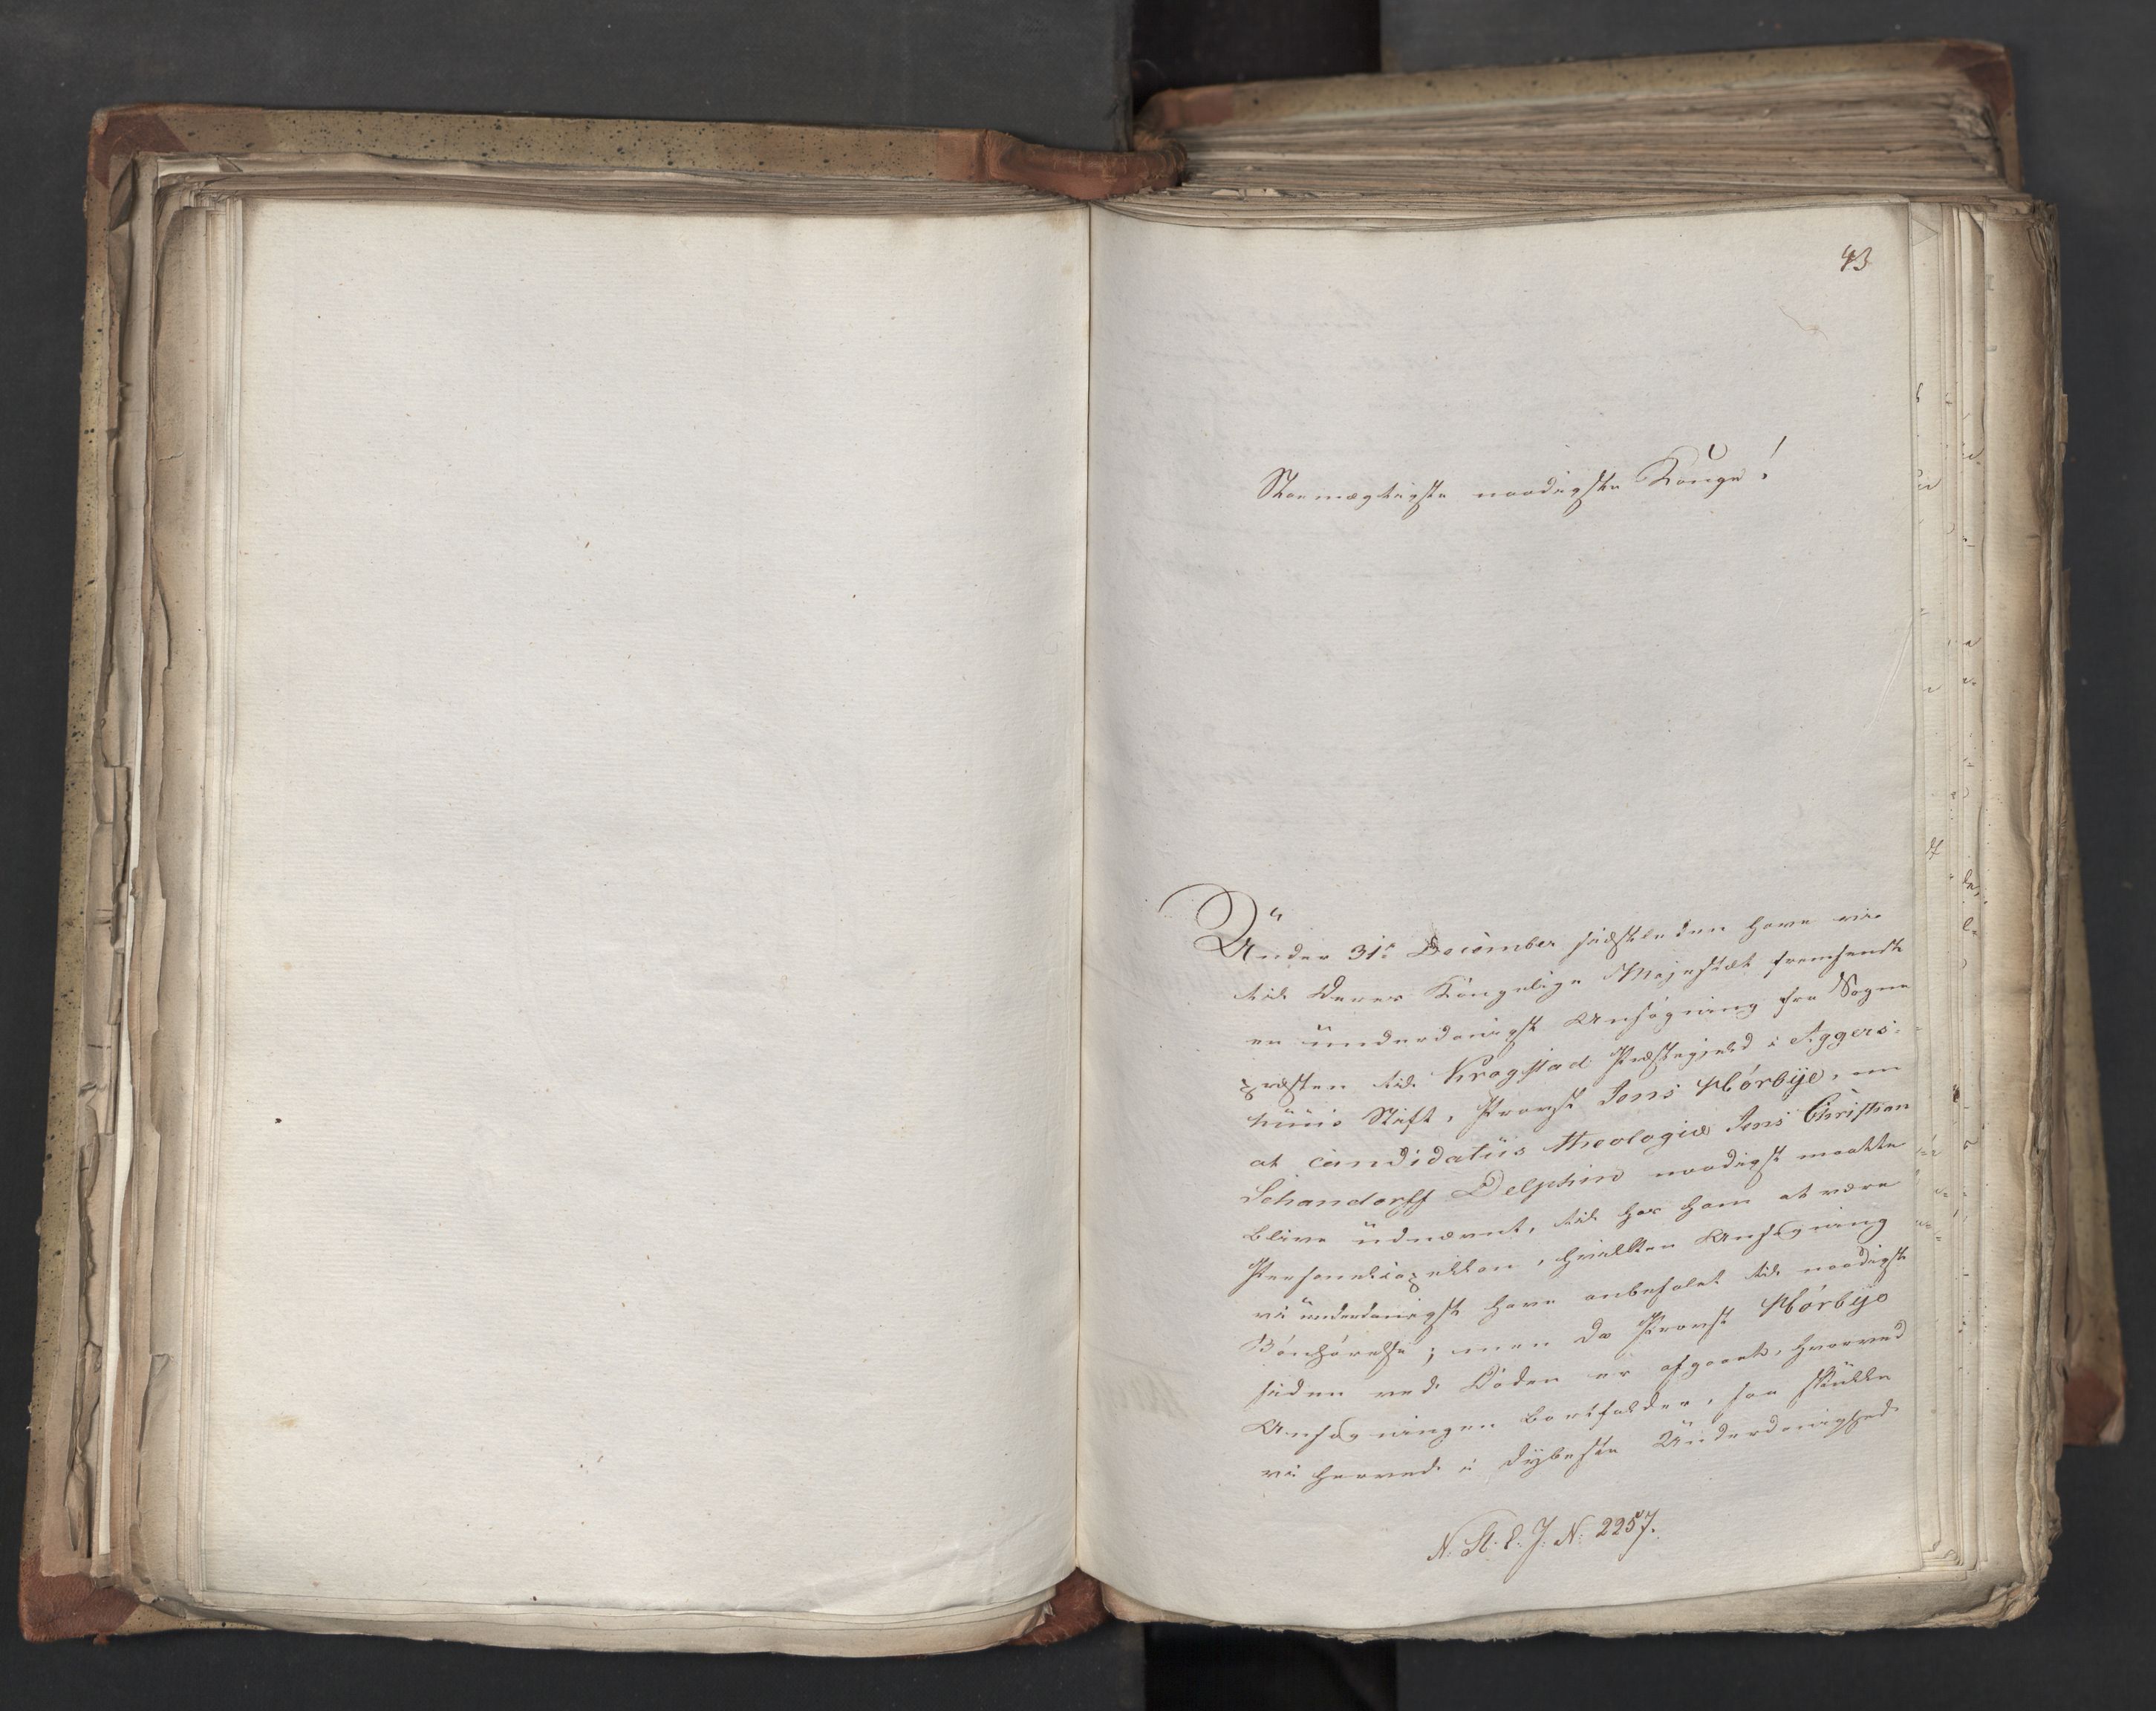 43
Stormægtigste naadigste Konge!
Under 31te December sidstleden have vi
til Deres Kongelige Majestæt fremsendt
en underdanigst Ansøgning fra Sogne
præsten til Kragstad Præstegjeld i Aggers-
huus Stift, Provst Jens Hörbye, om
at candidatus theologiæ Jens Christian
Schandorff Delphin naadigst maatte
blive udnævnt til hos ham at være
Personelcapellan, hvilken Ansøgning
vi underdanigst have anbefalet til naadigst
Bönhörelse; men da Provst Hörbye
siden ved Döden er afgaaet, hvorved
Ansøgningen bortfalder, saa skulle
vi herved i dybeste Underdanighed
N. St. E. J. N. 2257.